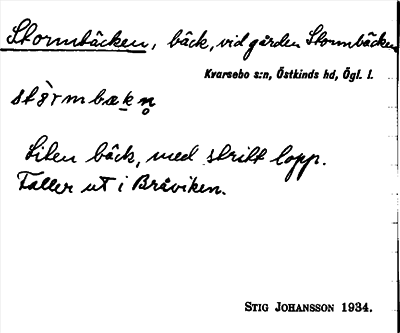 Stormbäcken, bäck, vid gården Stormbäcken
Kvarsebo s:n, Östkinds hd, Ögl. l.
Liten bäck, med stritt lopp.
Faller ut i Bråviken.
STIG JOHANSSON 1934.